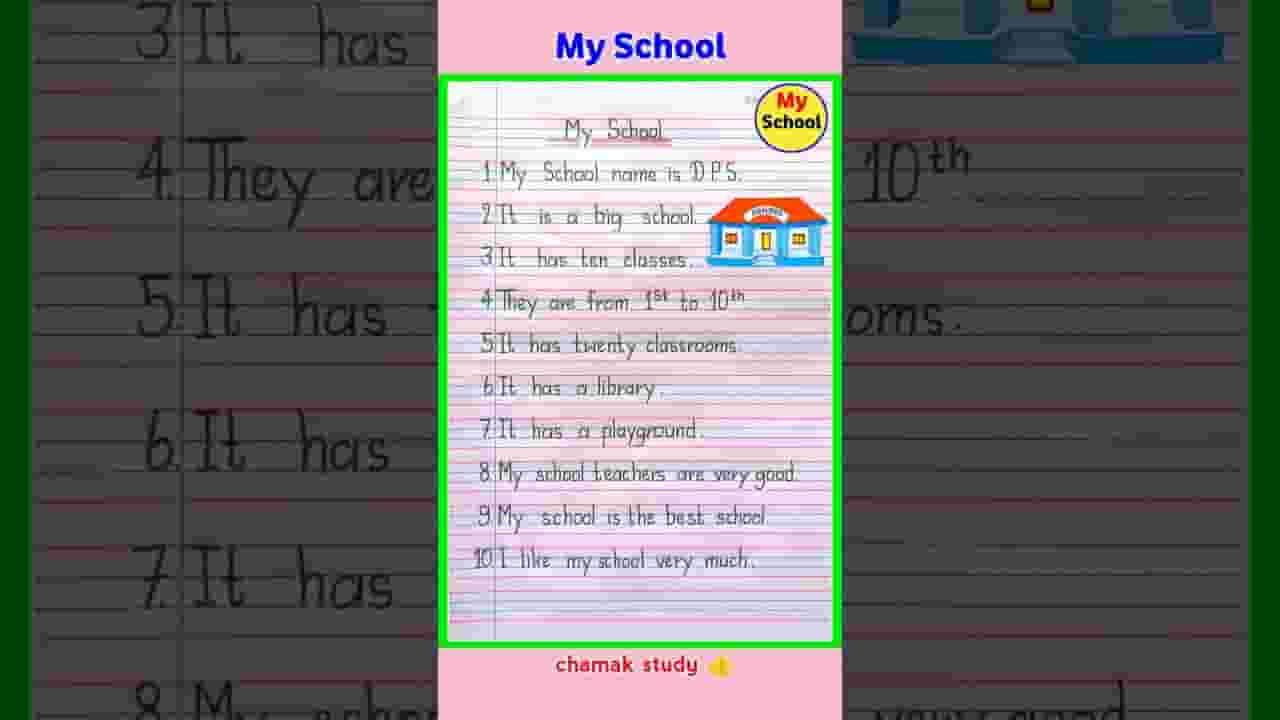 My School
My
School
My School
1. My School name is D.P.S.
2. It is a big school.
3. It has ten classes.
4. They are from 1st to 10th
5. It has twenty classrooms.
6. It has a library.
7. It has a playground.
8. My school teachers are very good.
9. My school is the best school.
10. I like my school very much.
chamak study 👍
3. It has
4. They are
10th
5. It has
oms.
6. It has
7. It has
8. My
very good